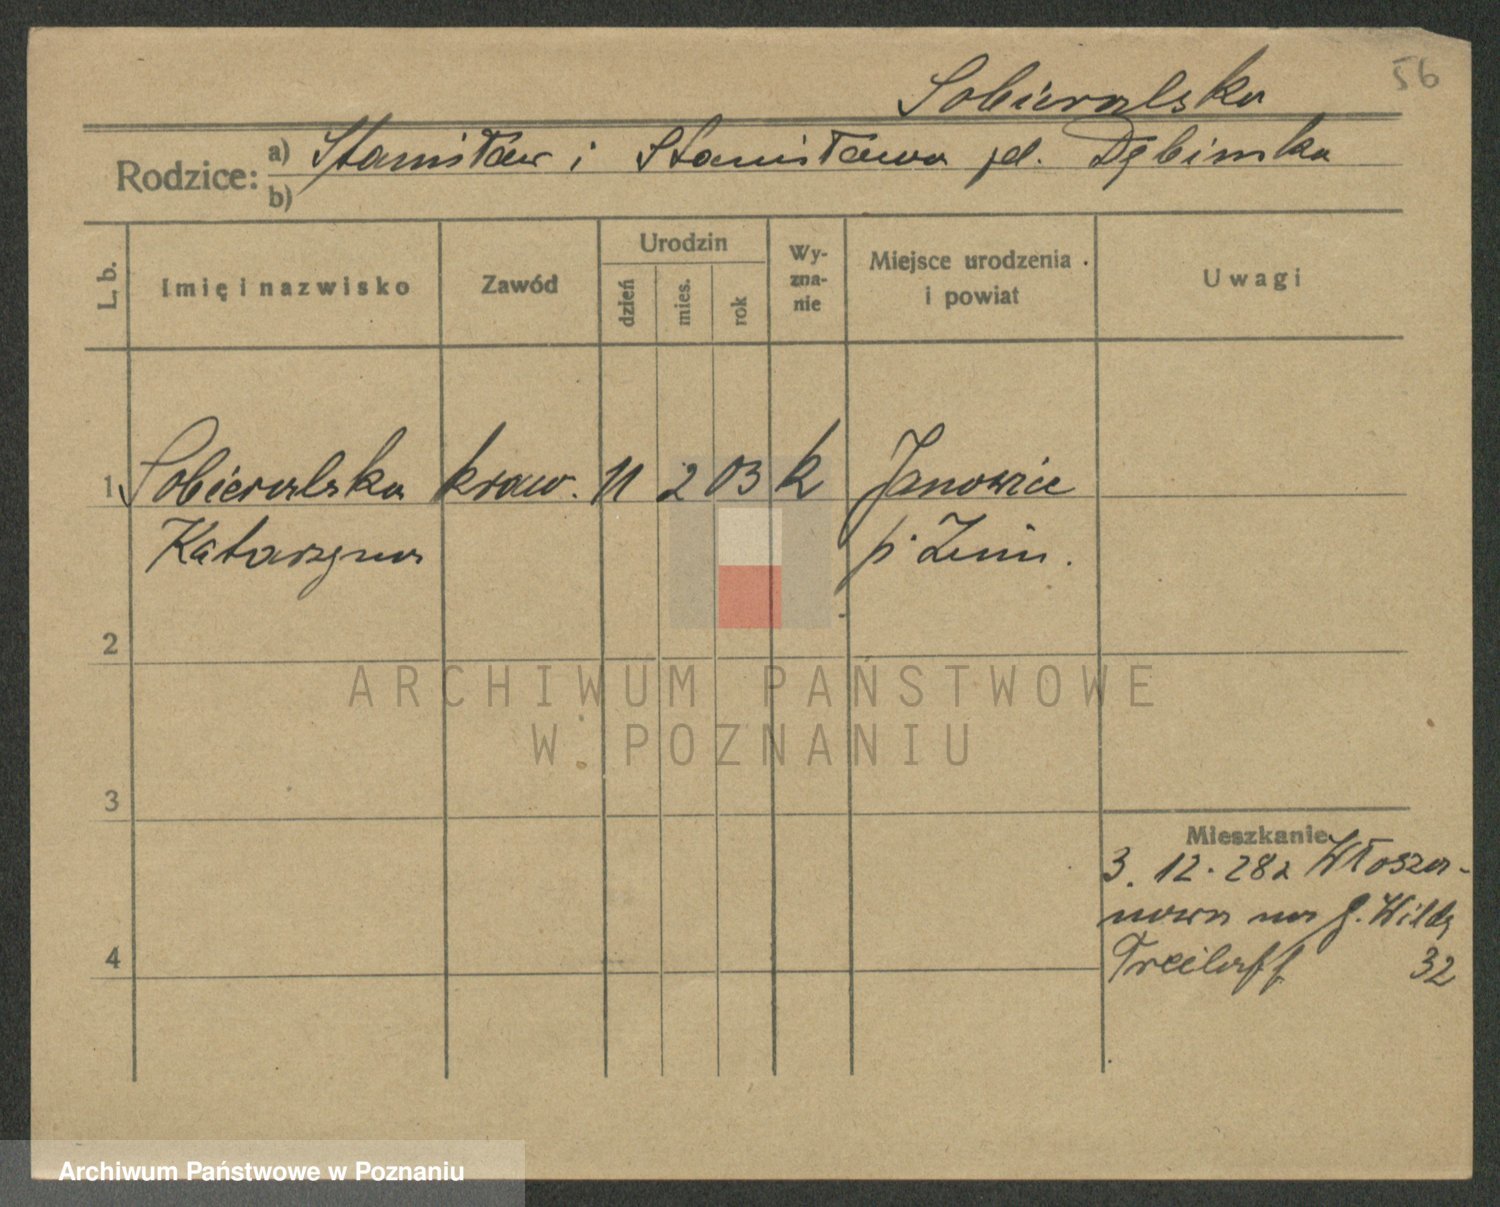 56
Sobieralska
Rodzice: a) Stanisław i Stanisława zd. Dębinska
b)
L. b. Imię i nazwisko Zawód Urodzin dzień mies. rok Wy-zna-nie Miejsce urodzenia i powiat Uwagi
1 Sobieralska kraw. 11 2 03 k Janowice
Katarzyna p. Żnin.
2
ARCHIWUM PAŃSTWOWE
W POZNANIU
3
Mieszkanie
3. 12. 28 z
na G. Wildę
4
32
Archiwum Państwowe w Poznaniu